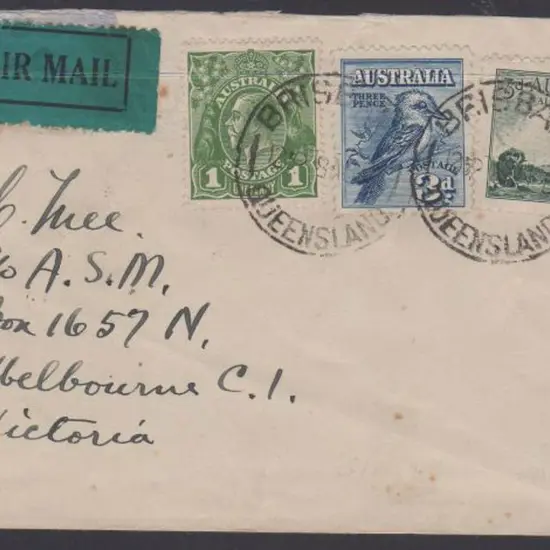 IR MAIL
AUSTRALIA
1 POSTAGE 1
PENNY
AUSTRALIA
THREE
PENCE
3d
AU
BRISB
QUEENSLAND
BRISBA
QUEENSLAND
C. Mee.
A.S.M.
ox 1657 N,
elbourne C.1.
ictoria